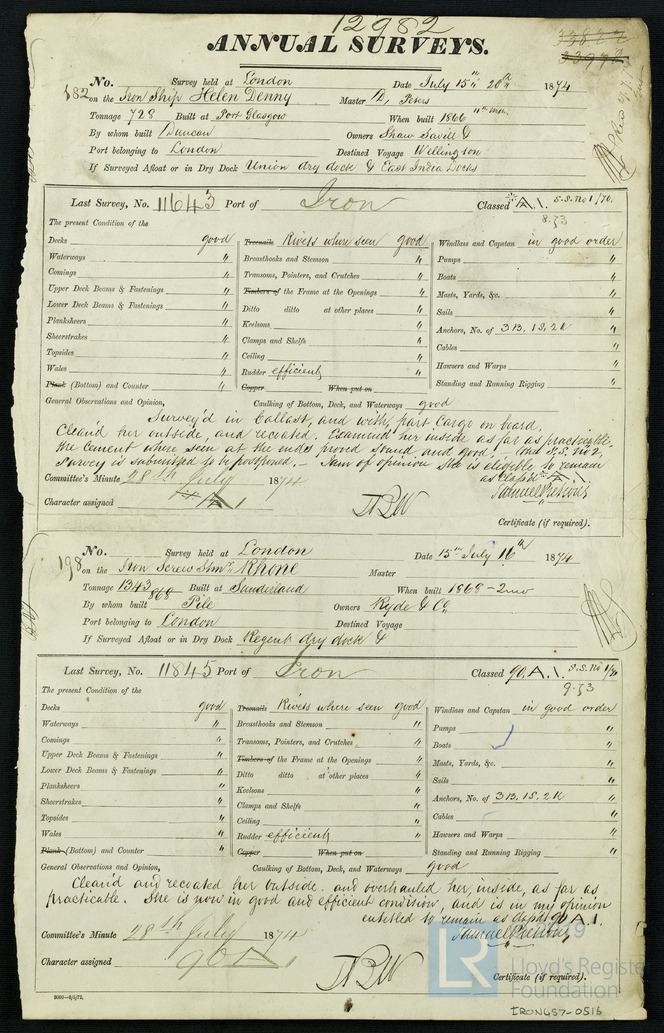 12982
ANNUAL SURVEYS.
No. Survey held at London Date July 15th 20th 1874
182 on the Iron Ship Helen Denny Master D. Peters
Tonnage 728 Built at Port Glasgow When built 1866
By whom built Duncan Owners Shaw Savill &
Port belonging to London Destined Voyage Wellington
If Surveyed Afloat or in Dry Dock Union dry dock & East India Docks
Last Survey, No. 11643 Port of Iron Classed A.1. S.S. No 1/70.
8.53
The present Condition of the
Decks good Treenails Rivets where seen good Windlass and Capstan in good order
Waterways " Breasthooks and Stemson " Pumps "
Comings " Transoms, Pointers, and Crutches " Boats "
Upper Deck Beams & Fastenings " Timbers of the Frame at the Openings " Masts, Yards, &c. "
Lower Deck Beams & Fastenings " Ditto ditto at other places " Sails "
Planksheers " Keelsons " Anchors, No. of 3B, 1S, 2K "
Sheerstrakes " Clamps and Shelfs " Cables "
Topsides " Ceiling " Hawsers and Warps "
Wales " Rudder efficient Standing and Running Rigging "
Plank (Bottom) and Counter " Copper When put on
General Observations and Opinion, Caulking of Bottom, Deck, and Waterways good
Survey'd in ballast, and with part Cargo on board.
Clean'd her outside, and recoated. Examined her inside as far as practicable,
the cement where seen at the ends proved sound and good. S.S. No 2,
survey is submitted to be postponed, I am of opinion she is eligible to remain
as class'd A.1.
Committee's Minute 28th July 1874
Character assigned A 1
Certificate (if required).
No. Survey held at London Date 15th July 16th 1874
198 on the Iron Screw Stmr Rhone Master
Tonnage 1343 868 Built at Sunderland When built 1868 - 2mo
By whom built Pile Owners Ryde & Co
Port belonging to London Destined Voyage
If Surveyed Afloat or in Dry Dock Regent dry dock &
Last Survey, No. 11845 Port of Iron Classed 90, A.1. S.S. No 1/71
9.53
The present Condition of the
Decks good Treenails Rivets where seen good Windlass and Capstan in good order
Waterways " Breasthooks and Stemson " Pumps "
Comings " Transoms, Pointers, and Crutches " Boats "
Upper Deck Beams & Fastenings " Timbers of the Frame at the Openings " Masts, Yards, &c. "
Lower Deck Beams & Fastenings " Ditto ditto at other places " Sails "
Planksheers " Keelsons " Anchors, No. of 3B, 1S, 2K "
Sheerstrakes " Clamps and Shelfs " Cables "
Topsides " Ceiling " Hawsers and Warps "
Wales " Rudder efficient Standing and Running Rigging "
Plank (Bottom) and Counter " Copper When put on
General Observations and Opinion, Caulking of Bottom, Deck, and Waterways good
Clean'd and recoated her outside. and overhauled her, inside, as far as
practicable. She is now in good and efficient condition, and is in my opinion
entitled to remain as class'd 90 A.1.
Committee's Minute 28th July 1874
Character assigned 90 A 1
Certificate (if required).
LR
Lloyd's Register
Foundation
IRON457-0516